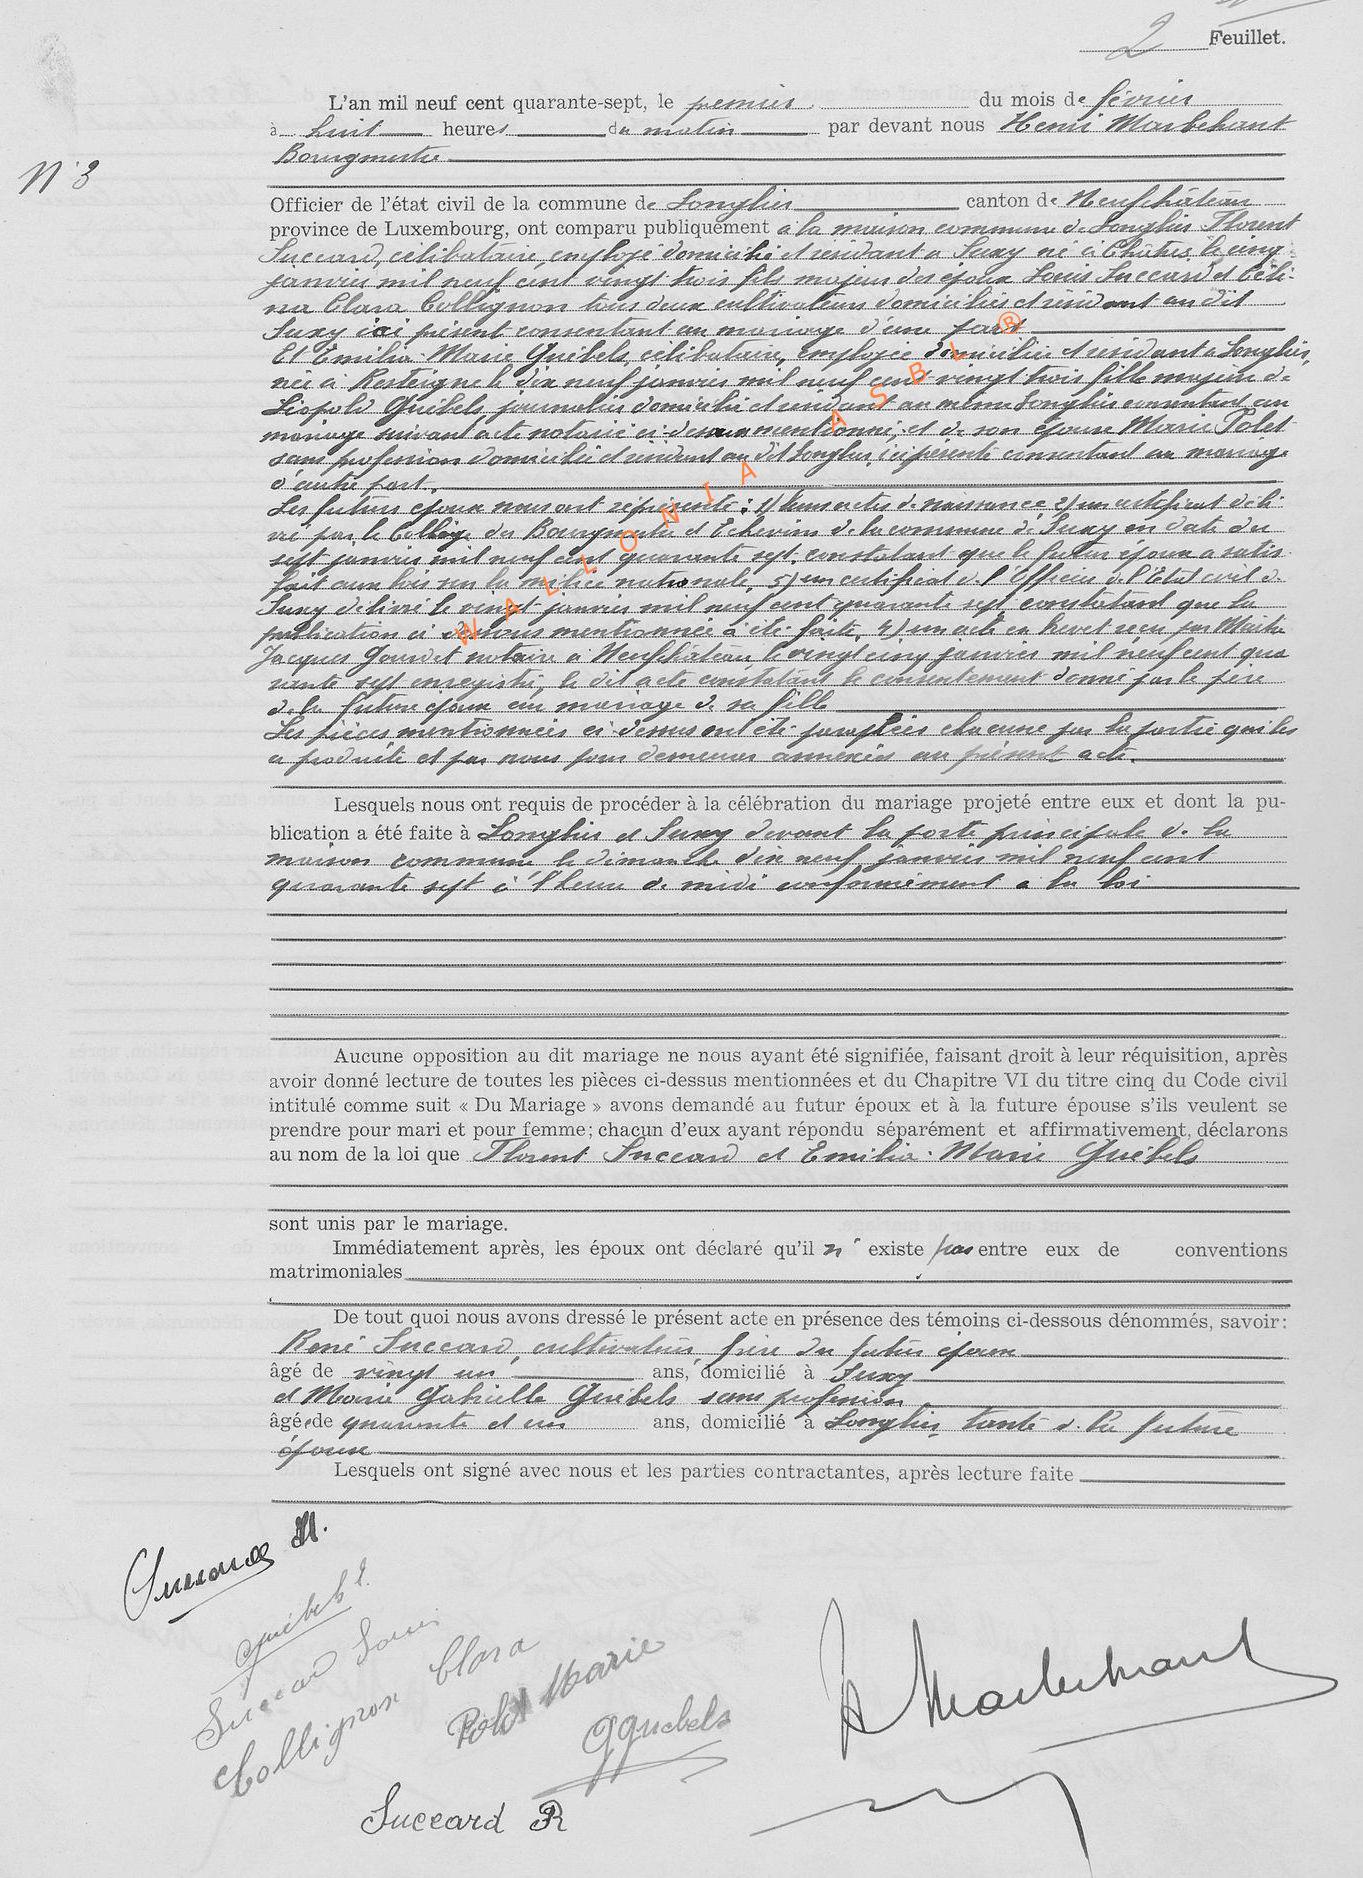 2 Feuillet.
L'an mil neuf cent quarante-sept, le premier du mois de février
à huit heures du matin par devant nous Henri Marbehant
Bourgmestre
N° 3
Officier de l'état civil de la commune de Longlier canton de Neufchâteau
province de Luxembourg, ont comparu publiquement à la maison commune de Longlier Florent
Succard, célibataire, employé domicilié et résidant à Suxy né à Chátres le cinq
janvier mil neuf cent vingt trois fils majeur des époux Louis Succard et Céli-
na Clara Collignon tous deux cultivateurs domiciliés et résidant au dit
Suxy ici présent consentant au mariage d'une part
Et Emilia-Marie Guébels, célibataire, employée domiciliée et résidant à Longlier,
née à Resteigne le dix neuf janvier mil neuf cent vingt trois fille majeure de
Léopold Guébels, journalier domicilié et résidant au même Longlier consentant au
mariage suivant acte notarié ci-dessous mentionné, et de son épouse Marie Polet
sans profession domiciliée et résidant au dit Longlier, ici présente consentant au mariage
d'autre part.
Les futurs époux nous ont représenté : 1) leurs actes de naissance 2) un certificat déli-
vré par le Collège des Bourgmestre et Echevins de la commune de Suxy en date du
sept janvier mil neuf cent quarante sept, constatant que le futur époux a satis-
fait aux lois sur la milice nationale, 3) un certificat de l'Officier de l'Etat civil de
Suxy délivré le vingt janvier mil neuf cent quarante sept constatant que la
publication ci dessous mentionnée a été faite, 4) un acte en brevet recu par Maitre
Jacques notaire à Neufchâteau le vingt cinq janvier mil neuf cent qua
rante sept enregistré, le dit acte constatant le consentement donné par le père
de la future épouse au mariage de sa fille
Les pièces mentionnées ci-dessus ont été paraphées chacune par la partie qui les
a produite et par nous pour demeurer annexées au présent acte.
Lesquels nous ont requis de procéder à la célébration du mariage projeté entre eux et dont la pu-
blication a été faite à Longlier et Suxy devant la porte principale de la
maison commune le dimanche dix neuf janvier mil neuf cent
quarante sept à l'heure de midi conformément à la loi
Aucune opposition au dit mariage ne nous ayant été signifiée, faisant droit à leur réquisition, après
avoir donné lecture de toutes les pièces ci-dessus mentionnées et du Chapitre VI du titre cinq du Code civil
intitulé comme suit « Du Mariage » avons demandé au futur époux et à la future épouse s'ils veulent se
prendre pour mari et pour femme; chacun d'eux ayant répondu séparément et affirmativement, déclarons
au nom de la loi que Florent Succard et Emilia-Marie Guébels
sont unis par le mariage.
Immédiatement après, les époux ont déclaré qu'il n' existe pas entre eux de conventions
matrimoniales
De tout quoi nous avons dressé le présent acte en présence des témoins ci-dessous dénommés, savoir:
René Succard, cultivateur, frère du futur époux
âgé de vingt un ans, domicilié à Suxy
et Marie Gabrielle Guébels sans profession
âgée de quarante et un ans, domicilié à Longlier, tante de la future
épouse
Lesquels ont signé avec nous et les parties contractantes, après lecture faite
Guébels E.
Succard Louis
Collignon Clara
Polet Marie
G Guebels
Succard R
H Marbehant
WALLONIA ASBL ®